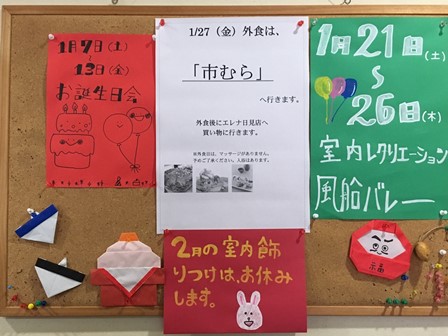 1月7日(土)
〜
13日(金)
お誕生日会
1/27(金)外食は、
「市むら」
へ行きます。
外食後にエレナ日見店へ
買い物に行きます。
1月21日(土)
〜
26日(木)
室内レクリエーション
風船バレー
2月の室内飾
りつけは、お休み
します。
福